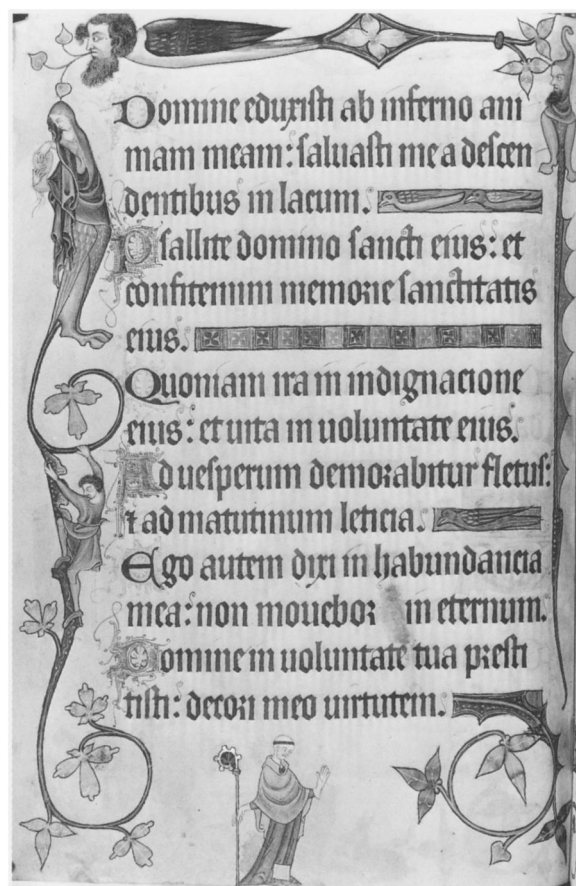 Domine eduxisti ab inferno ani
mam meam: saluasti me a descen
dentibus in lacum.
Psallite domino sancti eius: et
confitemini memorie sanctitatis
eius.
Quoniam ira in indignacione
eius: et uita in uoluntate eius.
Ad uesperum demorabitur fletus:
⁊ ad matutinum leticia.
Ego autem dixi in habundancia
mea: non mouebor in eternum.
Domine in uoluntate tua presti
tisti: decori meo uirtutem.